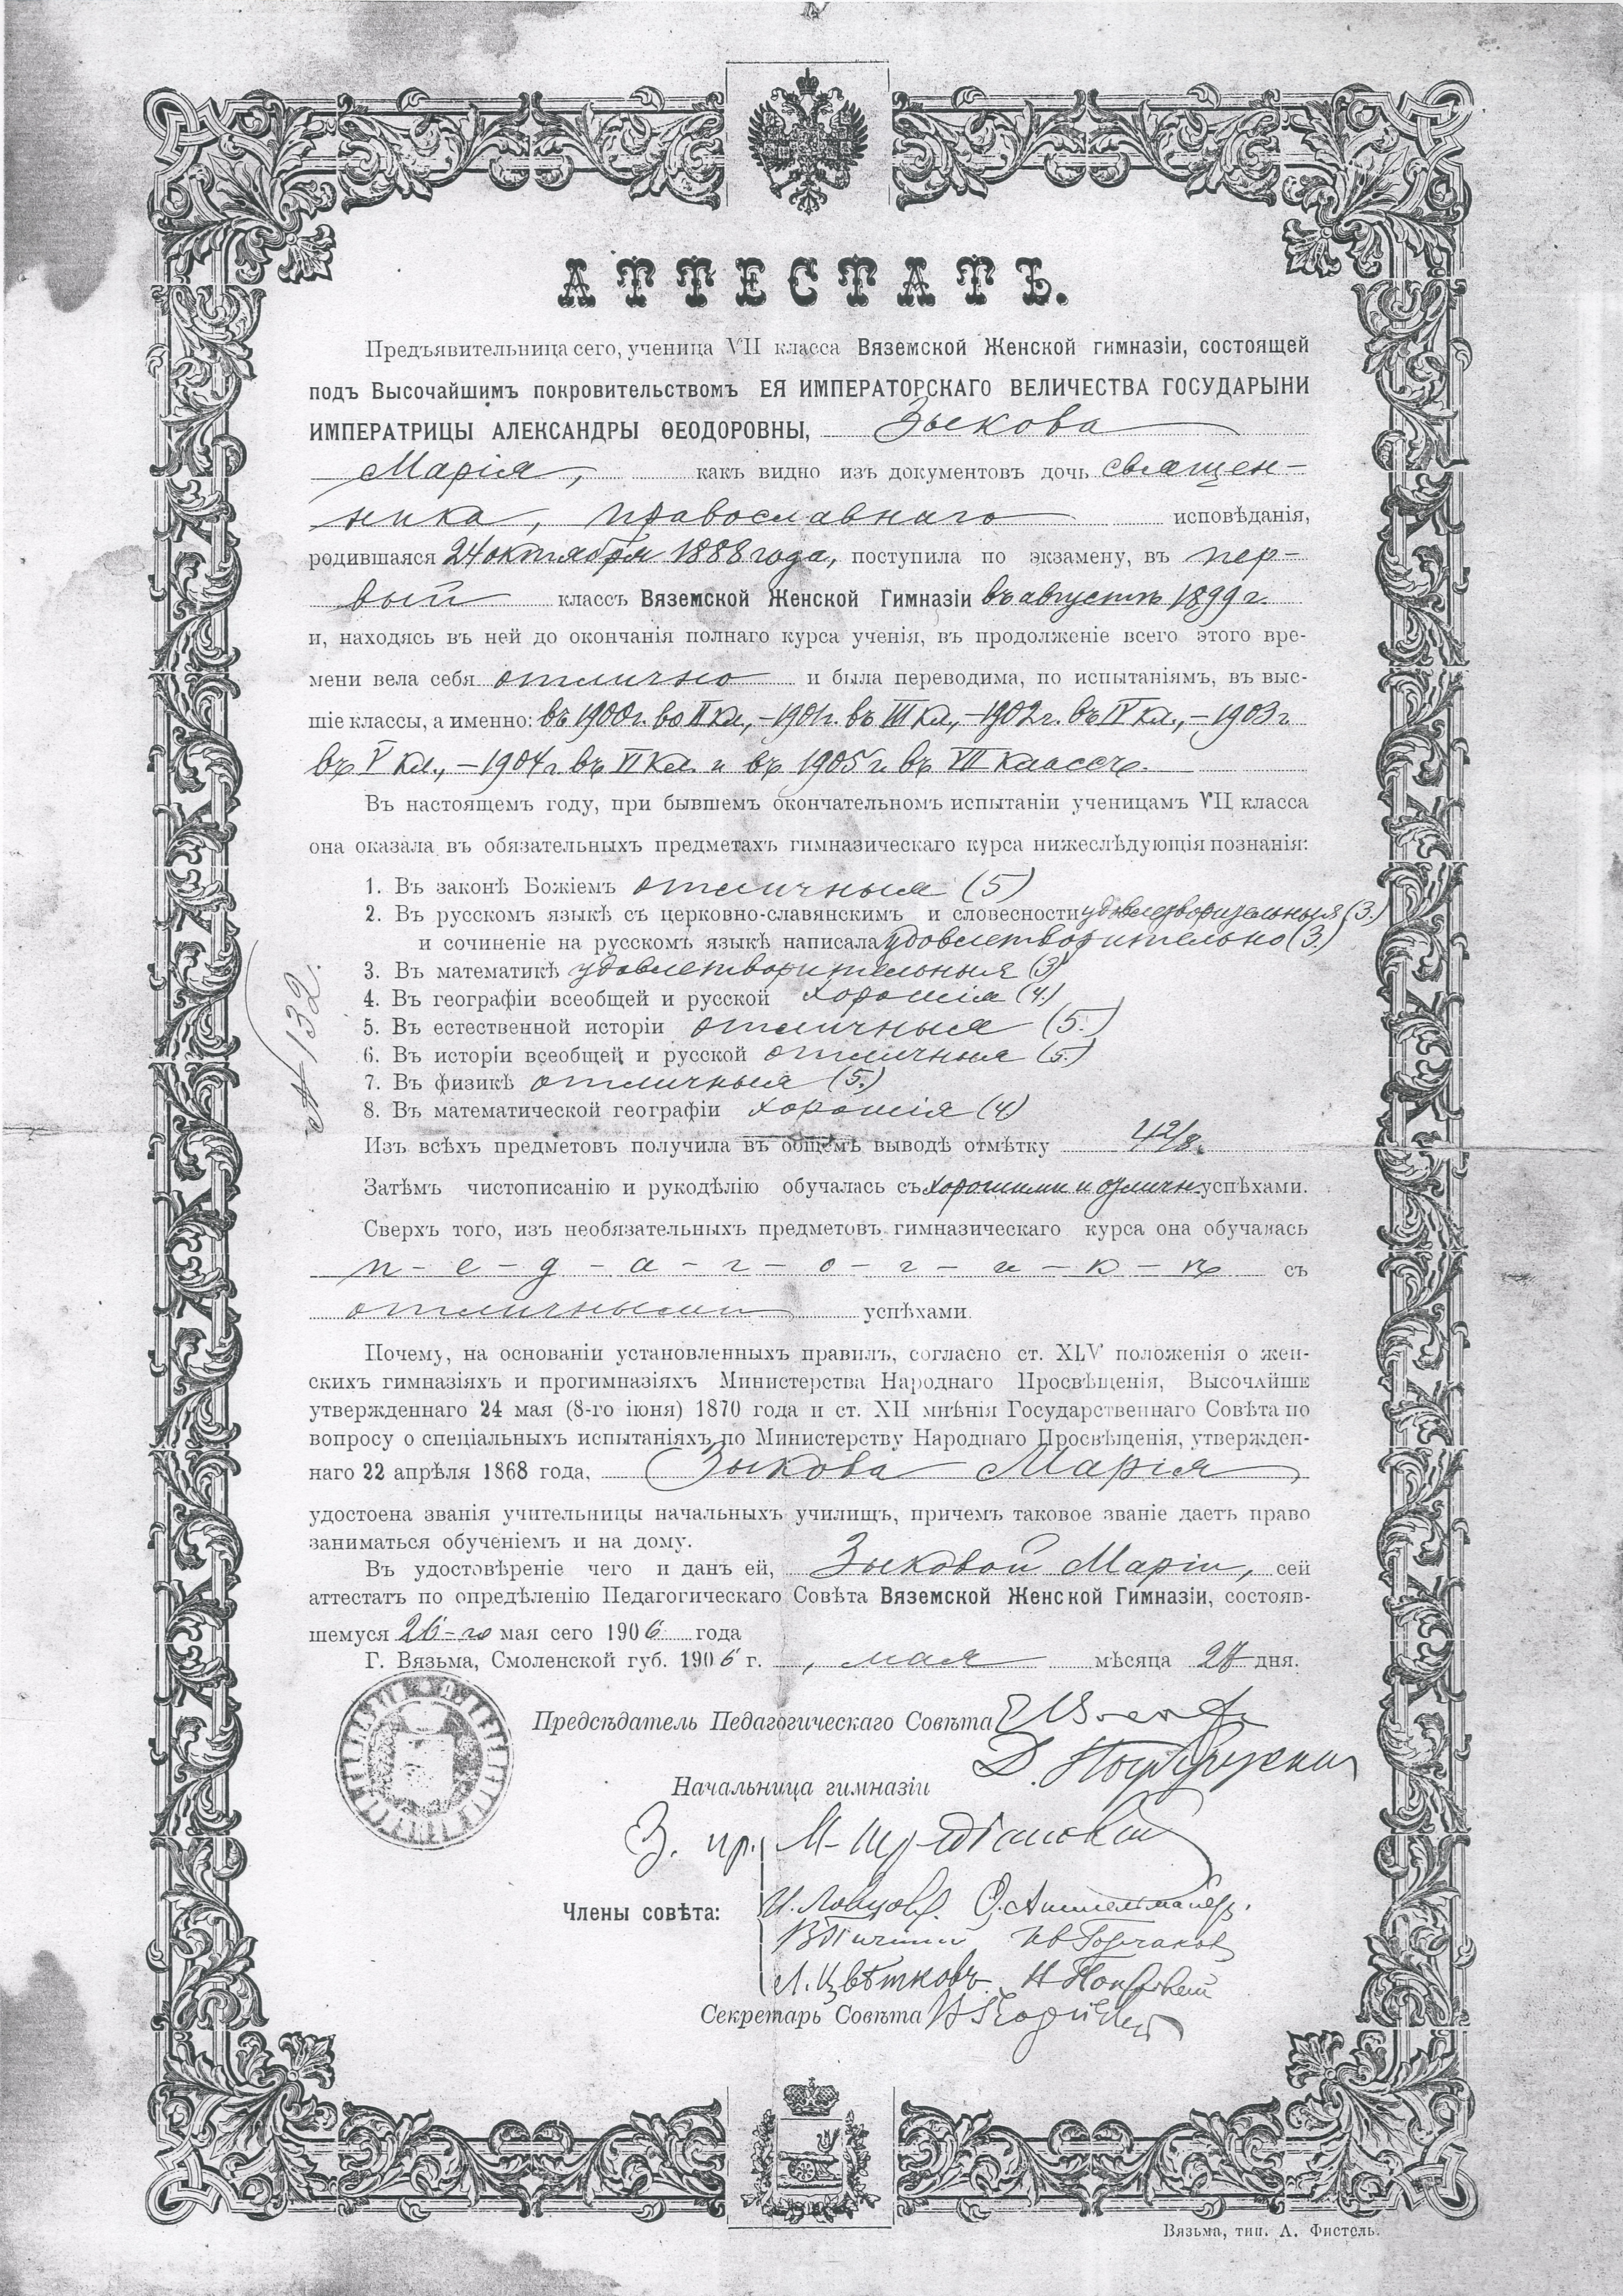 АТТЕСТАТЪ.
Предъявительница сего, ученица VII класса Вяземской Женской гимназіи, состоящей
подъ Высочайшимъ покровительствомъ ЕЯ ИМПЕРАТОРСКАГО ВЕЛИЧЕСТВА ГОСУДАРЫНИ
ИМПЕРАТРИЦЫ АЛЕКСАНДРЫ ѲЕОДОРОВНЫ, Зыкова
Марія, какъ видно изъ документовъ дочь священ-
ника, православнаго исповѣданія,
родившаяся 24 октября 1888 года, поступила по экзамену, въ пер-
вый классъ Вяземской Женской Гимназіи въ августѣ 1899 г.
и, находясь въ ней до окончанія полнаго курса ученія, въ продолженіе всего этого вре-
мени вела себя отлично и была переводима, по испытаніямъ, въ выс-
шіе классы, а именно: въ 1900 г. во II кл., - 1901 г. въ III кл., - 1902 г. въ IV кл., - 1903 г
въ V кл., - 1904 г въ VI кл. и въ 1905 г. въ VII классъ.
Въ настоящемъ году, при бывшемъ окончательномъ испытаніи ученицамъ VII класса
она оказала въ обязательныхъ предметахъ гимназическаго курса нижеслѣдующія познанія:
1. Въ законѣ Божіемъ отличныя (5)
2. Въ русскомъ языкѣ съ церковно-славянскимъ и словесности удовлетворительныя (3.)
и сочиненіе на русскомъ языкѣ написала удовлетворительно (3.)
3. Въ математикѣ удовлетворительныя (3)
4. Въ географіи всеобщей и русской хорошія (4.)
5. Въ естественной исторіи отличныя (5.)
6. Въ исторіи всеобщей и русской отличныя (5.)
7. Въ физикѣ отличныя (5.)
8. Въ математической географіи хорошія (4)
№ 132.
Изъ всѣхъ предметовъ получила въ общемъ выводѣ отмѣтку 4 2/8.
Затѣмъ чистописанію и рукодѣлію обучалась съ хорошими и отличн. успѣхами.
Сверхъ того, изъ необязательныхъ предметовъ гимназическаго курса она обучалась
п - е - д - а - г - о - г - и - к - ѣ съ
отличными успѣхами.
Почему, на основаніи установленныхъ правилъ, согласно ст. XLV положенія о жен-
скихъ гимназіяхъ и прогимназіяхъ Министерства Народнаго Просвѣщенія, Высочайше
утвержденнаго 24 мая (8-го іюня) 1870 года и ст. XII мнѣнія Государственнаго Совѣта по
вопросу о спеціальныхъ испытаніяхъ по Министерству Народнаго Просвѣщенія, утвержден-
наго 22 апрѣля 1868 года, Зыкова Марія
удостоена званія учительницы начальныхъ училищъ, причемъ таковое званіе даетъ право
заниматься обученіемъ и на дому.
Въ удостовѣреніе чего и данъ ей, Зыковой Маріи, сей
аттестатъ по опредѣленію Педагогическаго Совѣта Вяземской Женской Гимназіи, состояв-
шемуся 26-го мая сего 1906 года
Г. Вязьма, Смоленской губ. 1906 г. , мая мѣсяца дня.
Предсѣдатель Педагогическаго Совѣта
Д.
Начальница гимназіи
М.
Члены совѣта:
И. Ловцовъ. О.
Ив Горчаковъ
Л. Цвѣтковъ. Н Покровскій
Секретарь Совѣта Н
Вязьма, тип. А. Фистель.